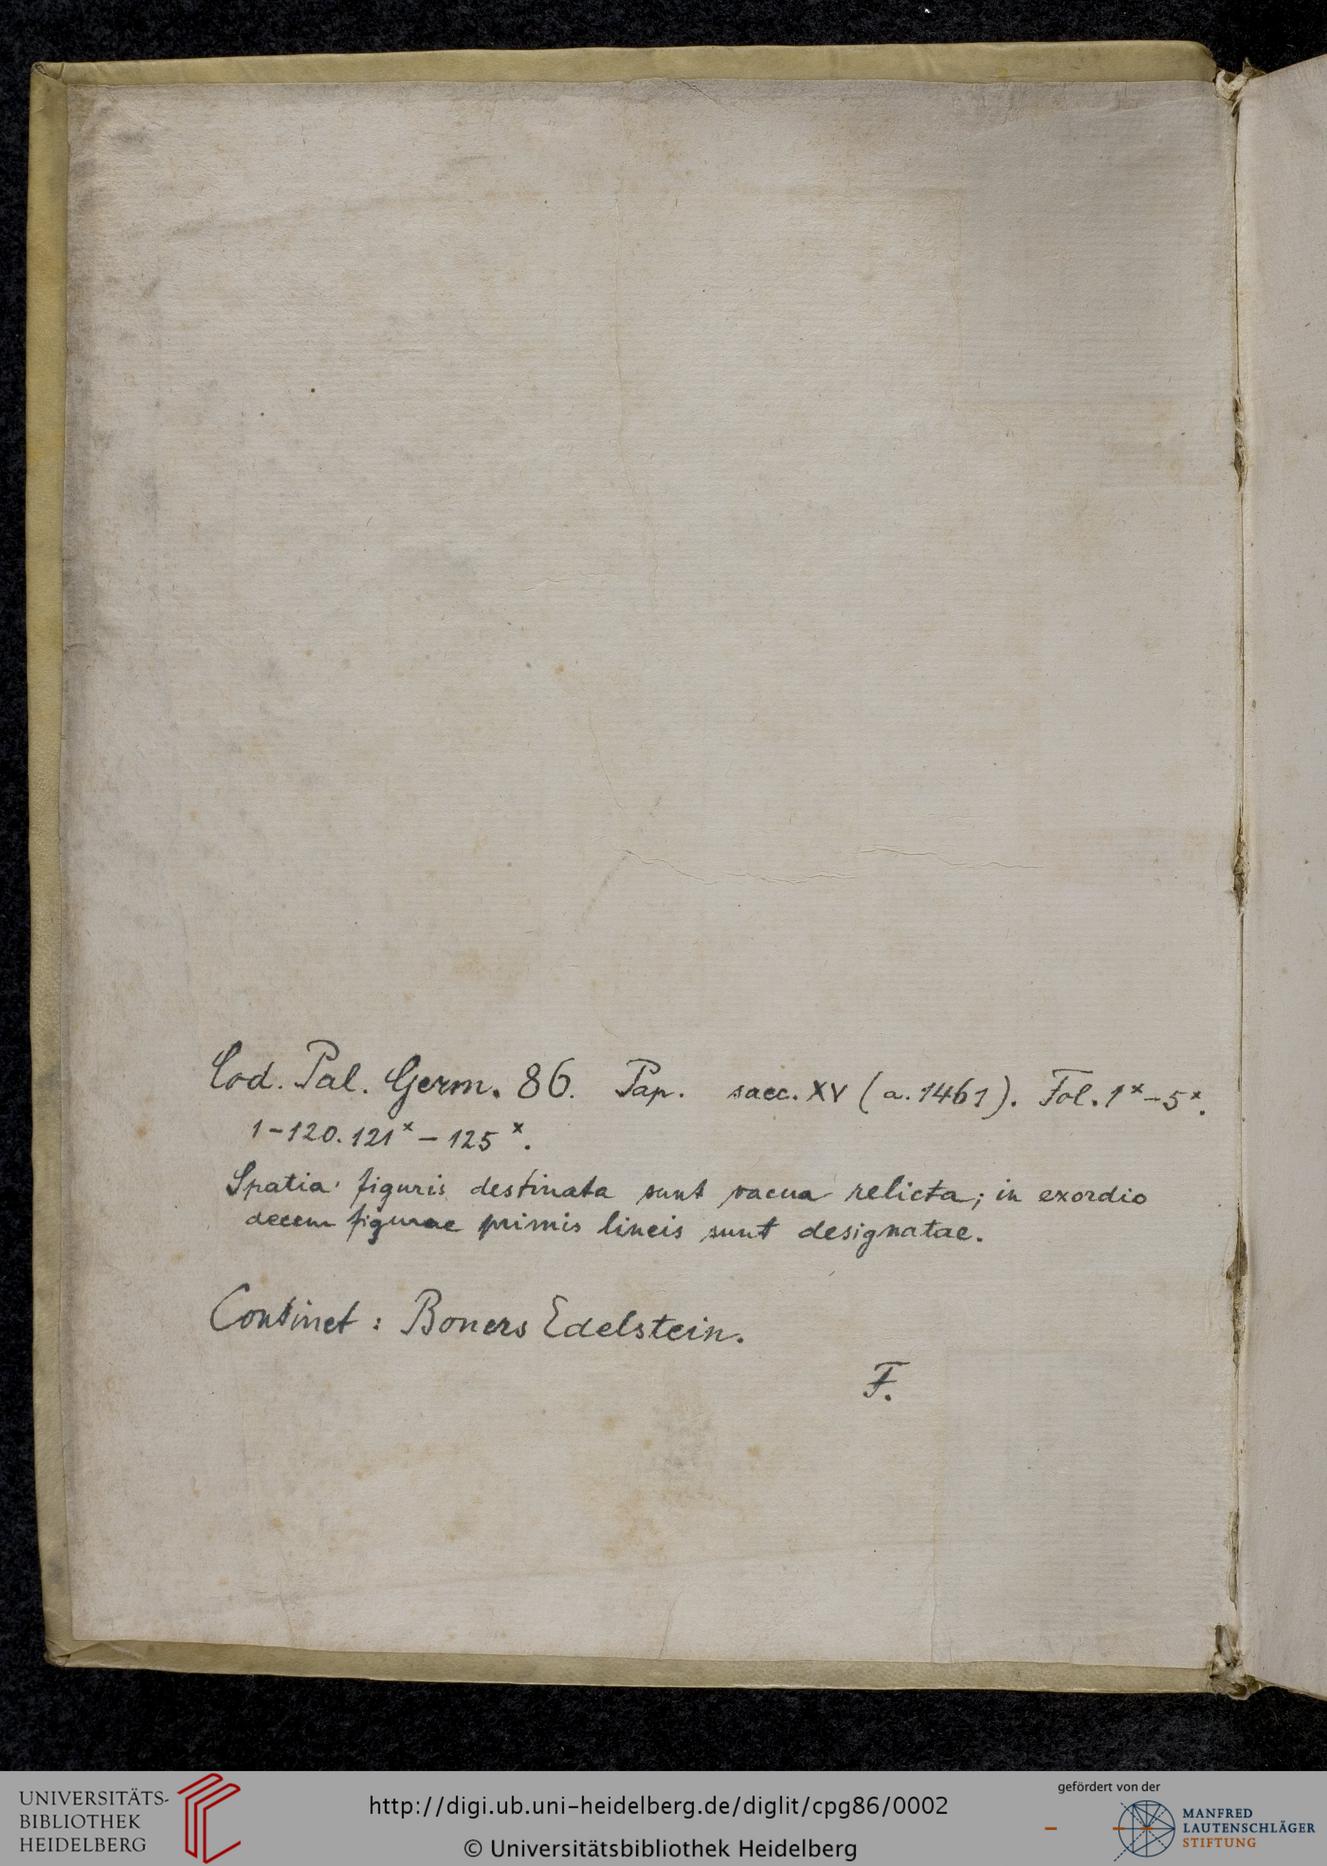 Cod. Pal. Germ. 86. Pap. saec. XV (a. 1461). Fol. 1ˣ–5ˣ.
1–120. 121ˣ – 125ˣ.
Spatia figuris destinata sunt vacua relicta; in exordio
decem figurae primis lineis sunt designatae.
Continet : Boners Edelstein.
F.
UNIVERSITÄTS-
BIBLIOTHEK
HEIDELBERG
http://digi.ub.uni-heidelberg.de/diglit/cpg86/0002
© Universitätsbibliothek Heidelberg
gefördert von der
MANFRED
LAUTENSCHLÄGER
STIFTUNG